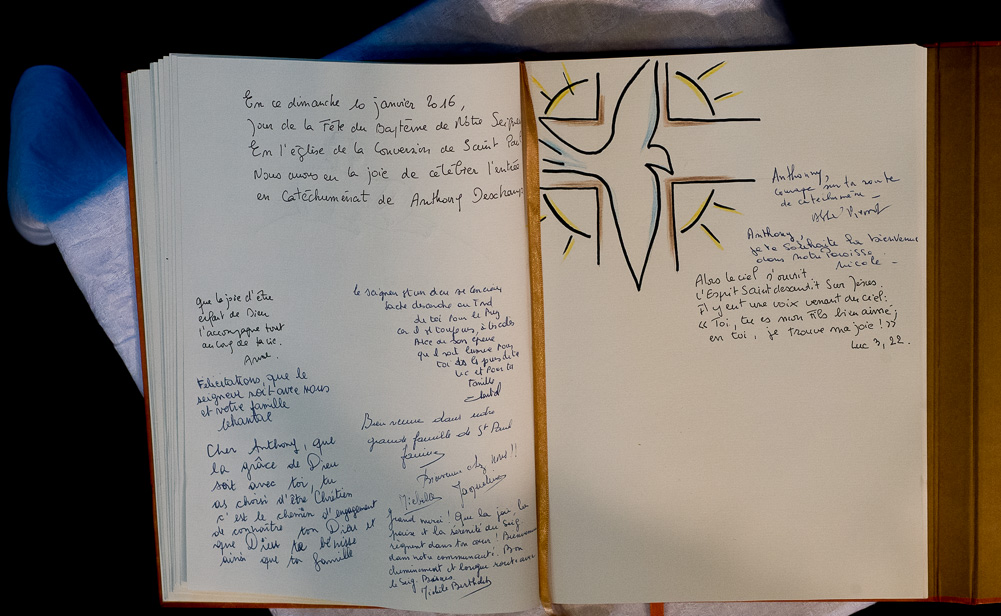 En ce dimanche 10 janvier 2016,
Jour de la Fête du Baptême de Nôtre Seigneu
En l'église de la Conversion de Saint Paul
Nous avons eu la joie de célébrer l'entrée
en Catéchuménat de Anthony Deschamp
que la joie d'être
enfant de Dieu
l'accompagne tout
au long de la vie.
Anne.
Félicitations, que le
seigneur soit avec vous
et votre famille
Chantal
Cher Anthony, que
la grâce de Dieu
soit avec toi, tu
as choisi d'être Chrétien
c'est le chemin d'engagement
de connaître ton Dieu et
que Dieu te bénisse
ainsi que ta famille
le seigneur est un dieu
de toi Pour le
toujours, à tes côtés
qu'il soit lumière Pour
toi
et Pour ta
famille
Bienvenue dans notre
grande famille de St Paul
Bienvenue chez nous !!
Michèle Jacqueline
Grand merci ! Que la joie, la
paix et la sérénité du Seig.
règnent dans ton cœur ! Bienvenue
dans notre communauté. Bon
cheminement et longue route avec
le Seig. Bisous
Michèle Berthelot
Anthony,
courage sur ta route
de catéchumène -
Abbé
Anthony,
je te souhaite la bienvenue
dans notre Paroisse
Nicole -
Alors le ciel s'ouvrit
L'Esprit Saint descendit sur Jésus.
Il y eut une voix venant du ciel :
« Toi, tu es mon Fils bien aimé ;
en toi, je trouve ma joie ! »
Luc 3, 22.